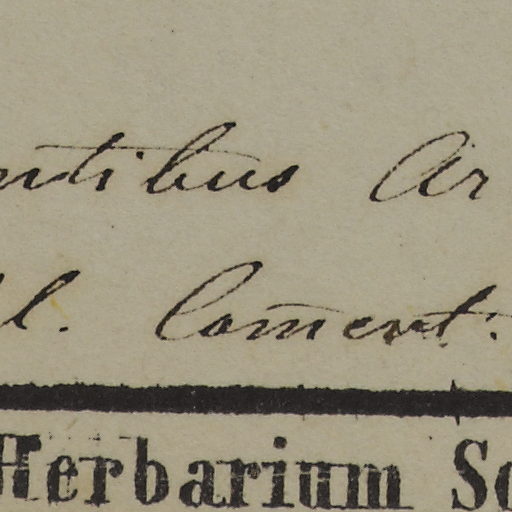 ntibus Ar
l. Coment.
Herbarium Sc